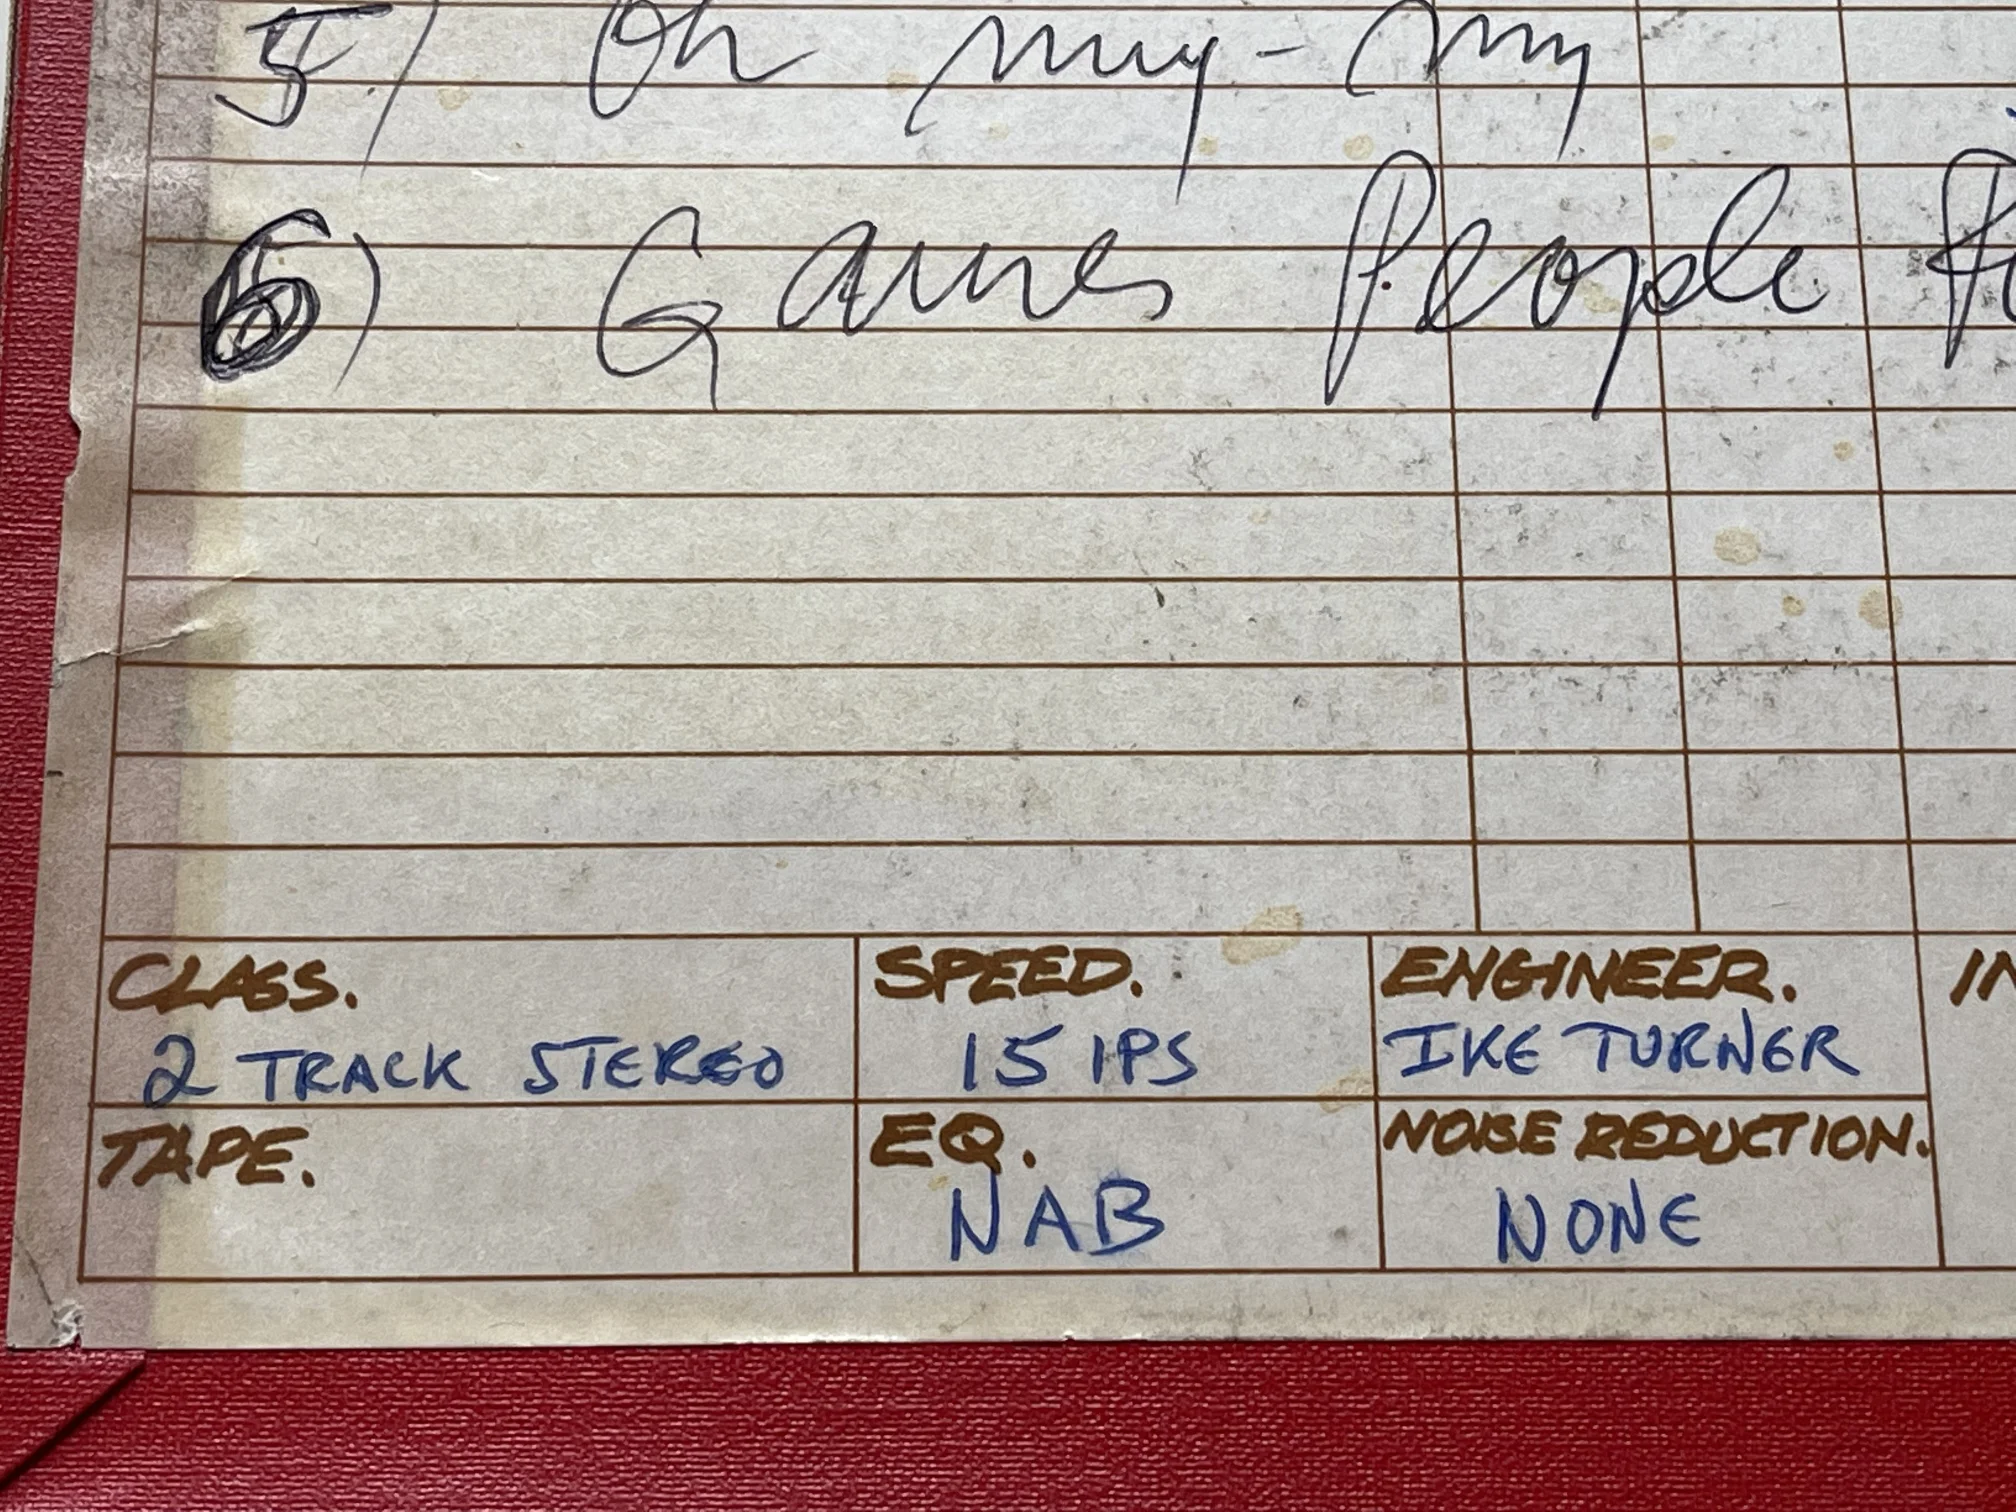 5) Oh my-my
6) Games People
CLASS. SPEED. ENGINEER.
2 TRACK STEREO 15 IPS IKE TURNER
TAPE. EQ. NOISE REDUCTION.
NAB NONE